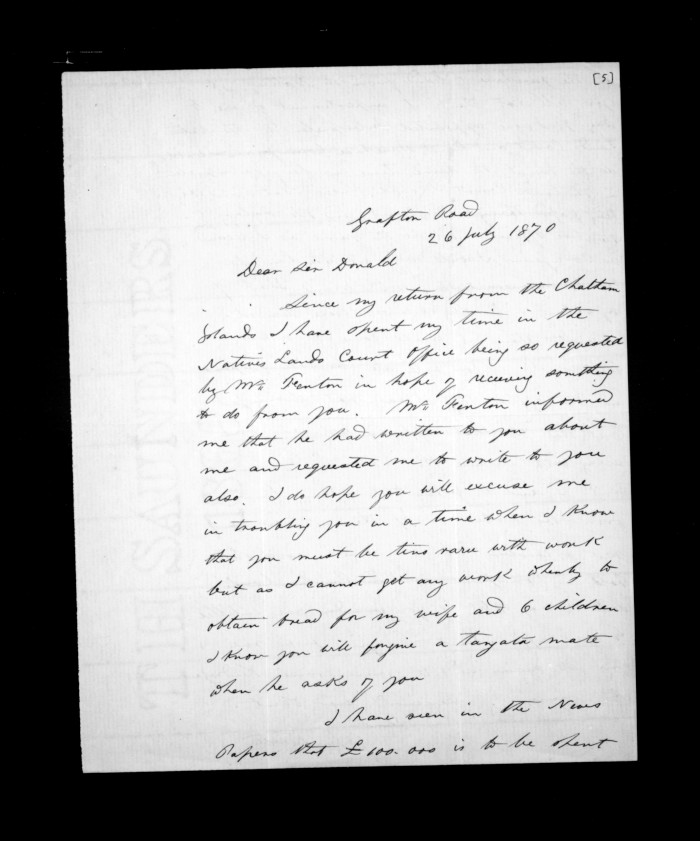 [5]
Grafton Road
26 July 1870
Dear Sir Donald
Since my return from the Chatham
Islands I have spent my time in the
Natives Lands Court Office being so requested
by Mr Fenton in hope of receiving something
to do from you. Mr Fenton informed
me that he had written to you about
me and requested me to write to you
also. I do hope you will excuse me
in troubling you in a time when I know
that you must be with work
but as I cannot get any work whereby to
obtain bread for my wife and 6 children
I know you will forgive a tangata mate
when he asks of you
I have seen in the News
Papers that £100.000 is to be spent